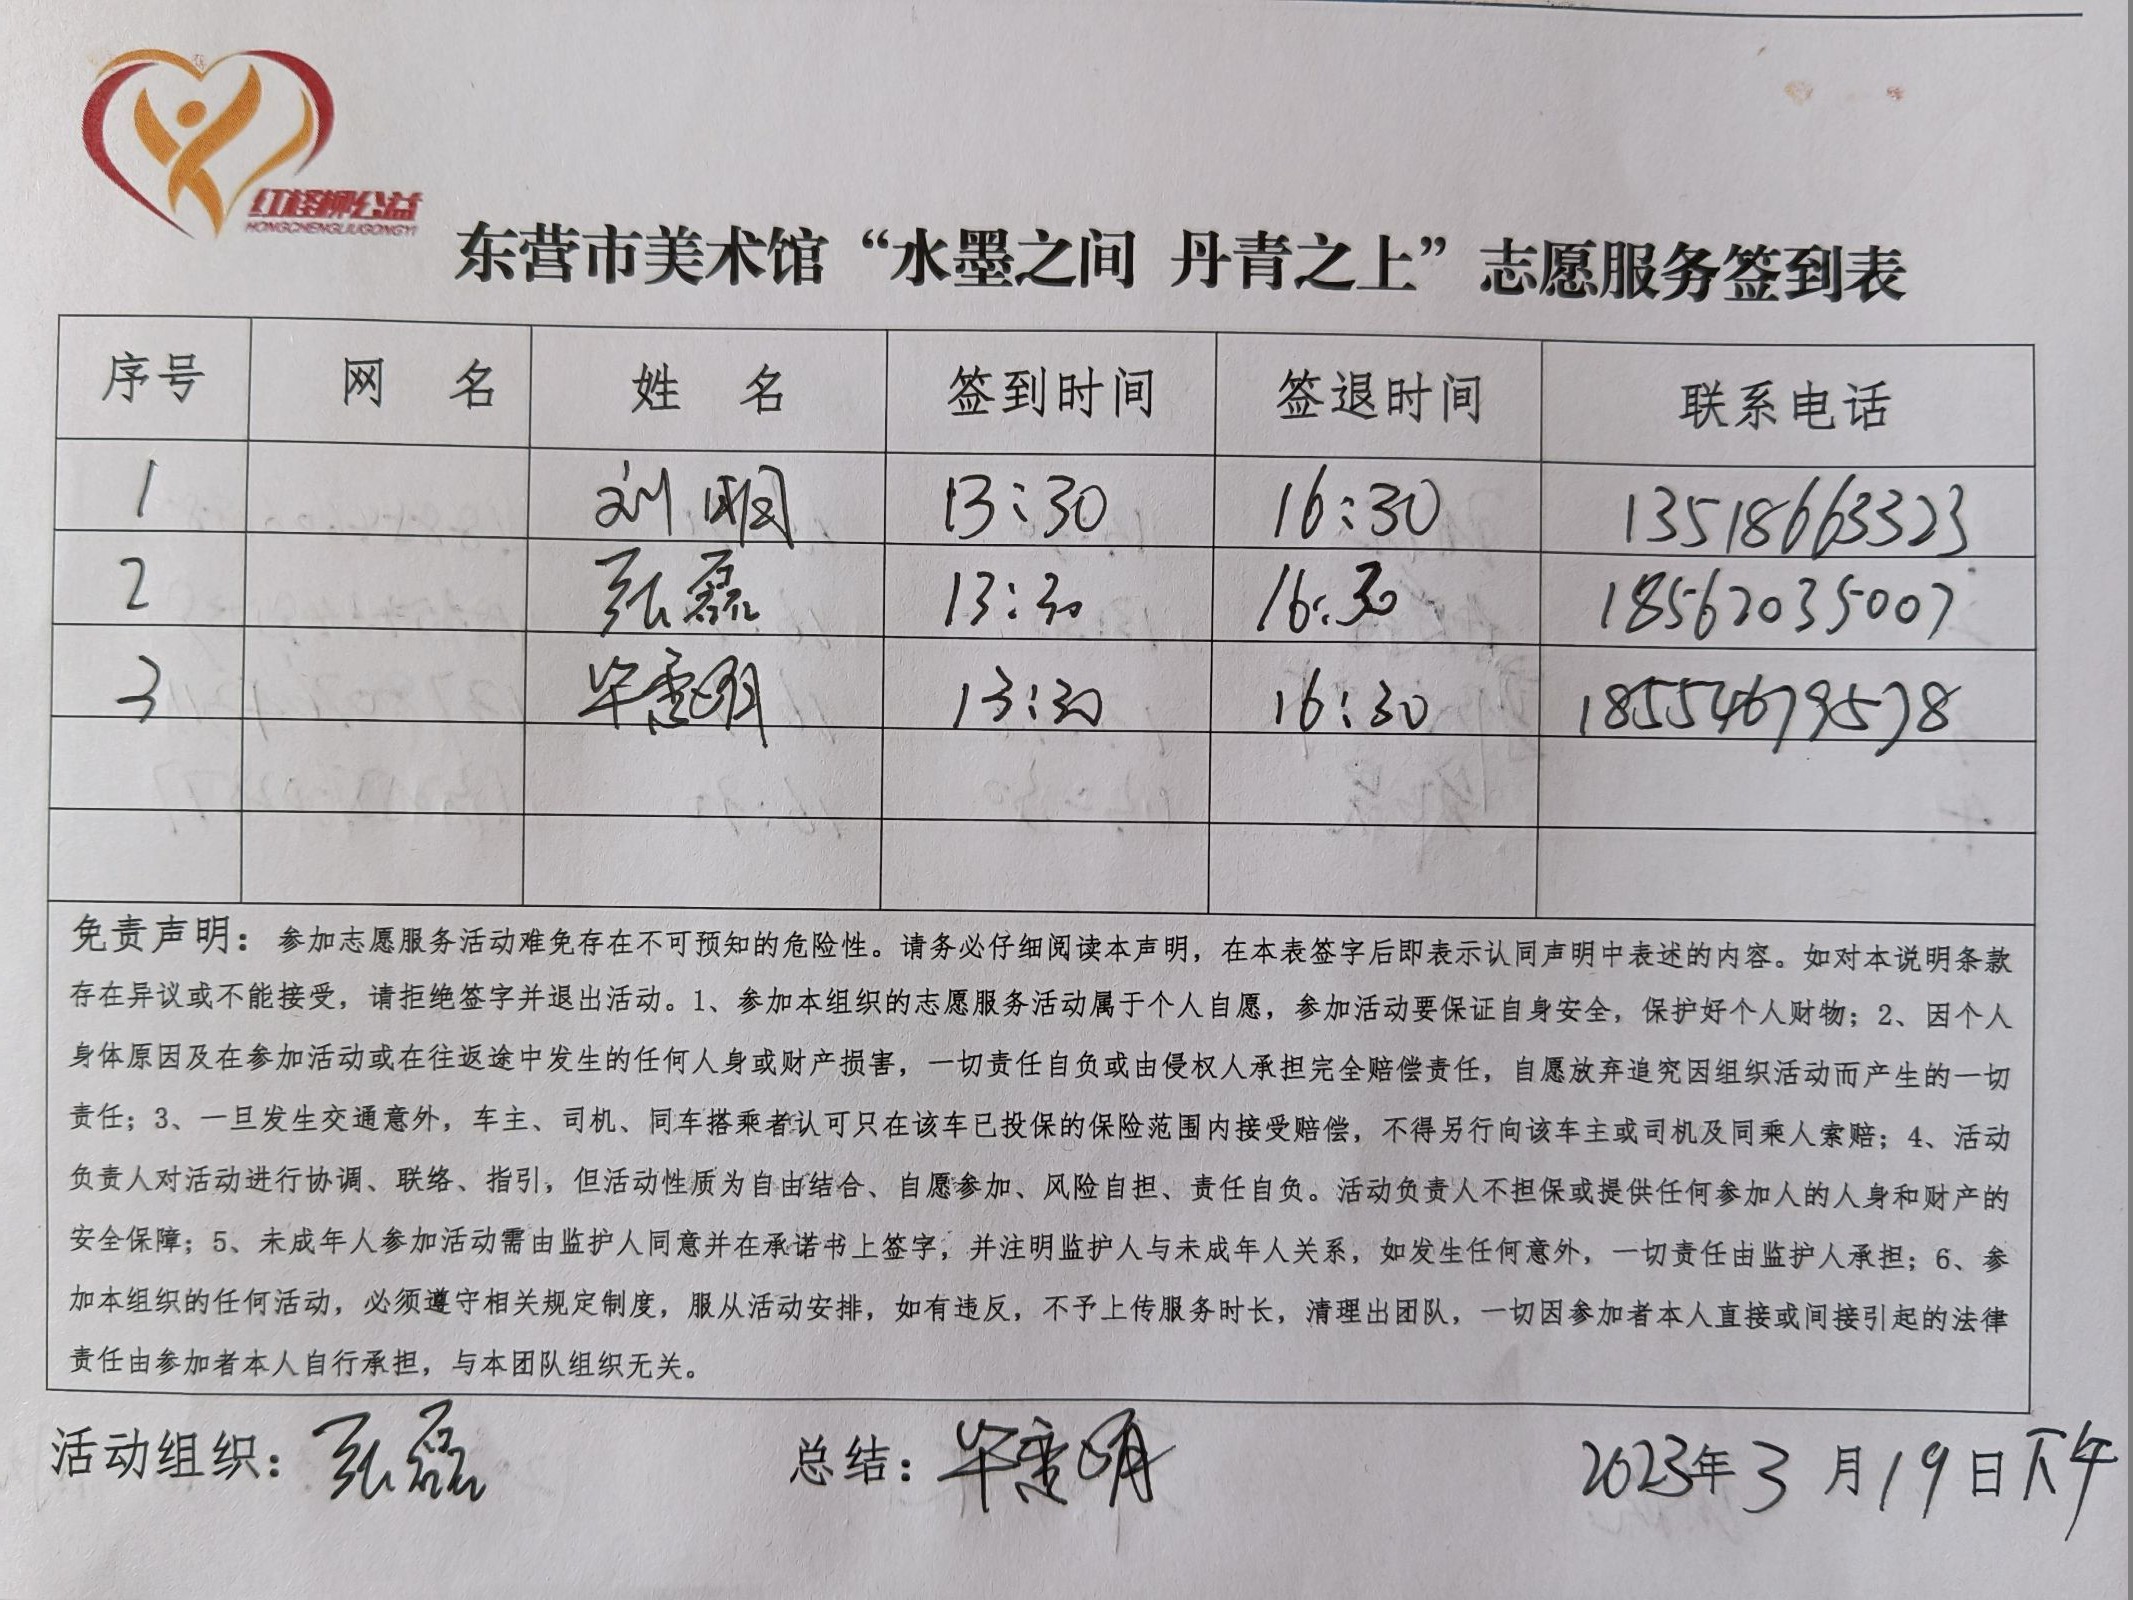 红柽柳公益
HONGCHENGLIUGONGYI
东营市美术馆“水墨之间 丹青之上”志愿服务签到表
序号 网 名 姓 名 签到时间 签退时间 联系电话
1 刘明 13:30 16:30 13518663323
2 张磊 13:30 16:30 18562035007
3 毕重明 13:30 16:30 18554679578
免责声明：参加志愿服务活动难免存在不可预知的危险性。请务必仔细阅读本声明，在本表签字后即表示认同声明中表述的内容。如对本说明条款
存在异议或不能接受，请拒绝签字并退出活动。1、参加本组织的志愿服务活动属于个人自愿，参加活动要保证自身安全，保护好个人财物；2、因个人
身体原因及在参加活动或在往返途中发生的任何人身或财产损害，一切责任自负或由侵权人承担完全赔偿责任，自愿放弃追究因组织活动而产生的一切
责任；3、一旦发生交通意外，车主、司机、同车搭乘者认可只在该车已投保的保险范围内接受赔偿，不得另行向该车主或司机及同乘人索赔；4、活动
负责人对活动进行协调、联络、指引，但活动性质为自由结合、自愿参加、风险自担、责任自负。活动负责人不担保或提供任何参加人的人身和财产的
安全保障；5、未成年人参加活动需由监护人同意并在承诺书上签字，并注明监护人与未成年人关系，如发生任何意外，一切责任由监护人承担；6、参
加本组织的任何活动，必须遵守相关规定制度，服从活动安排，如有违反，不予上传服务时长，清理出团队，一切因参加者本人直接或间接引起的法律
责任由参加者本人自行承担，与本团队组织无关。
活动组织：张磊 总结：毕重明 2023年3月19日下午